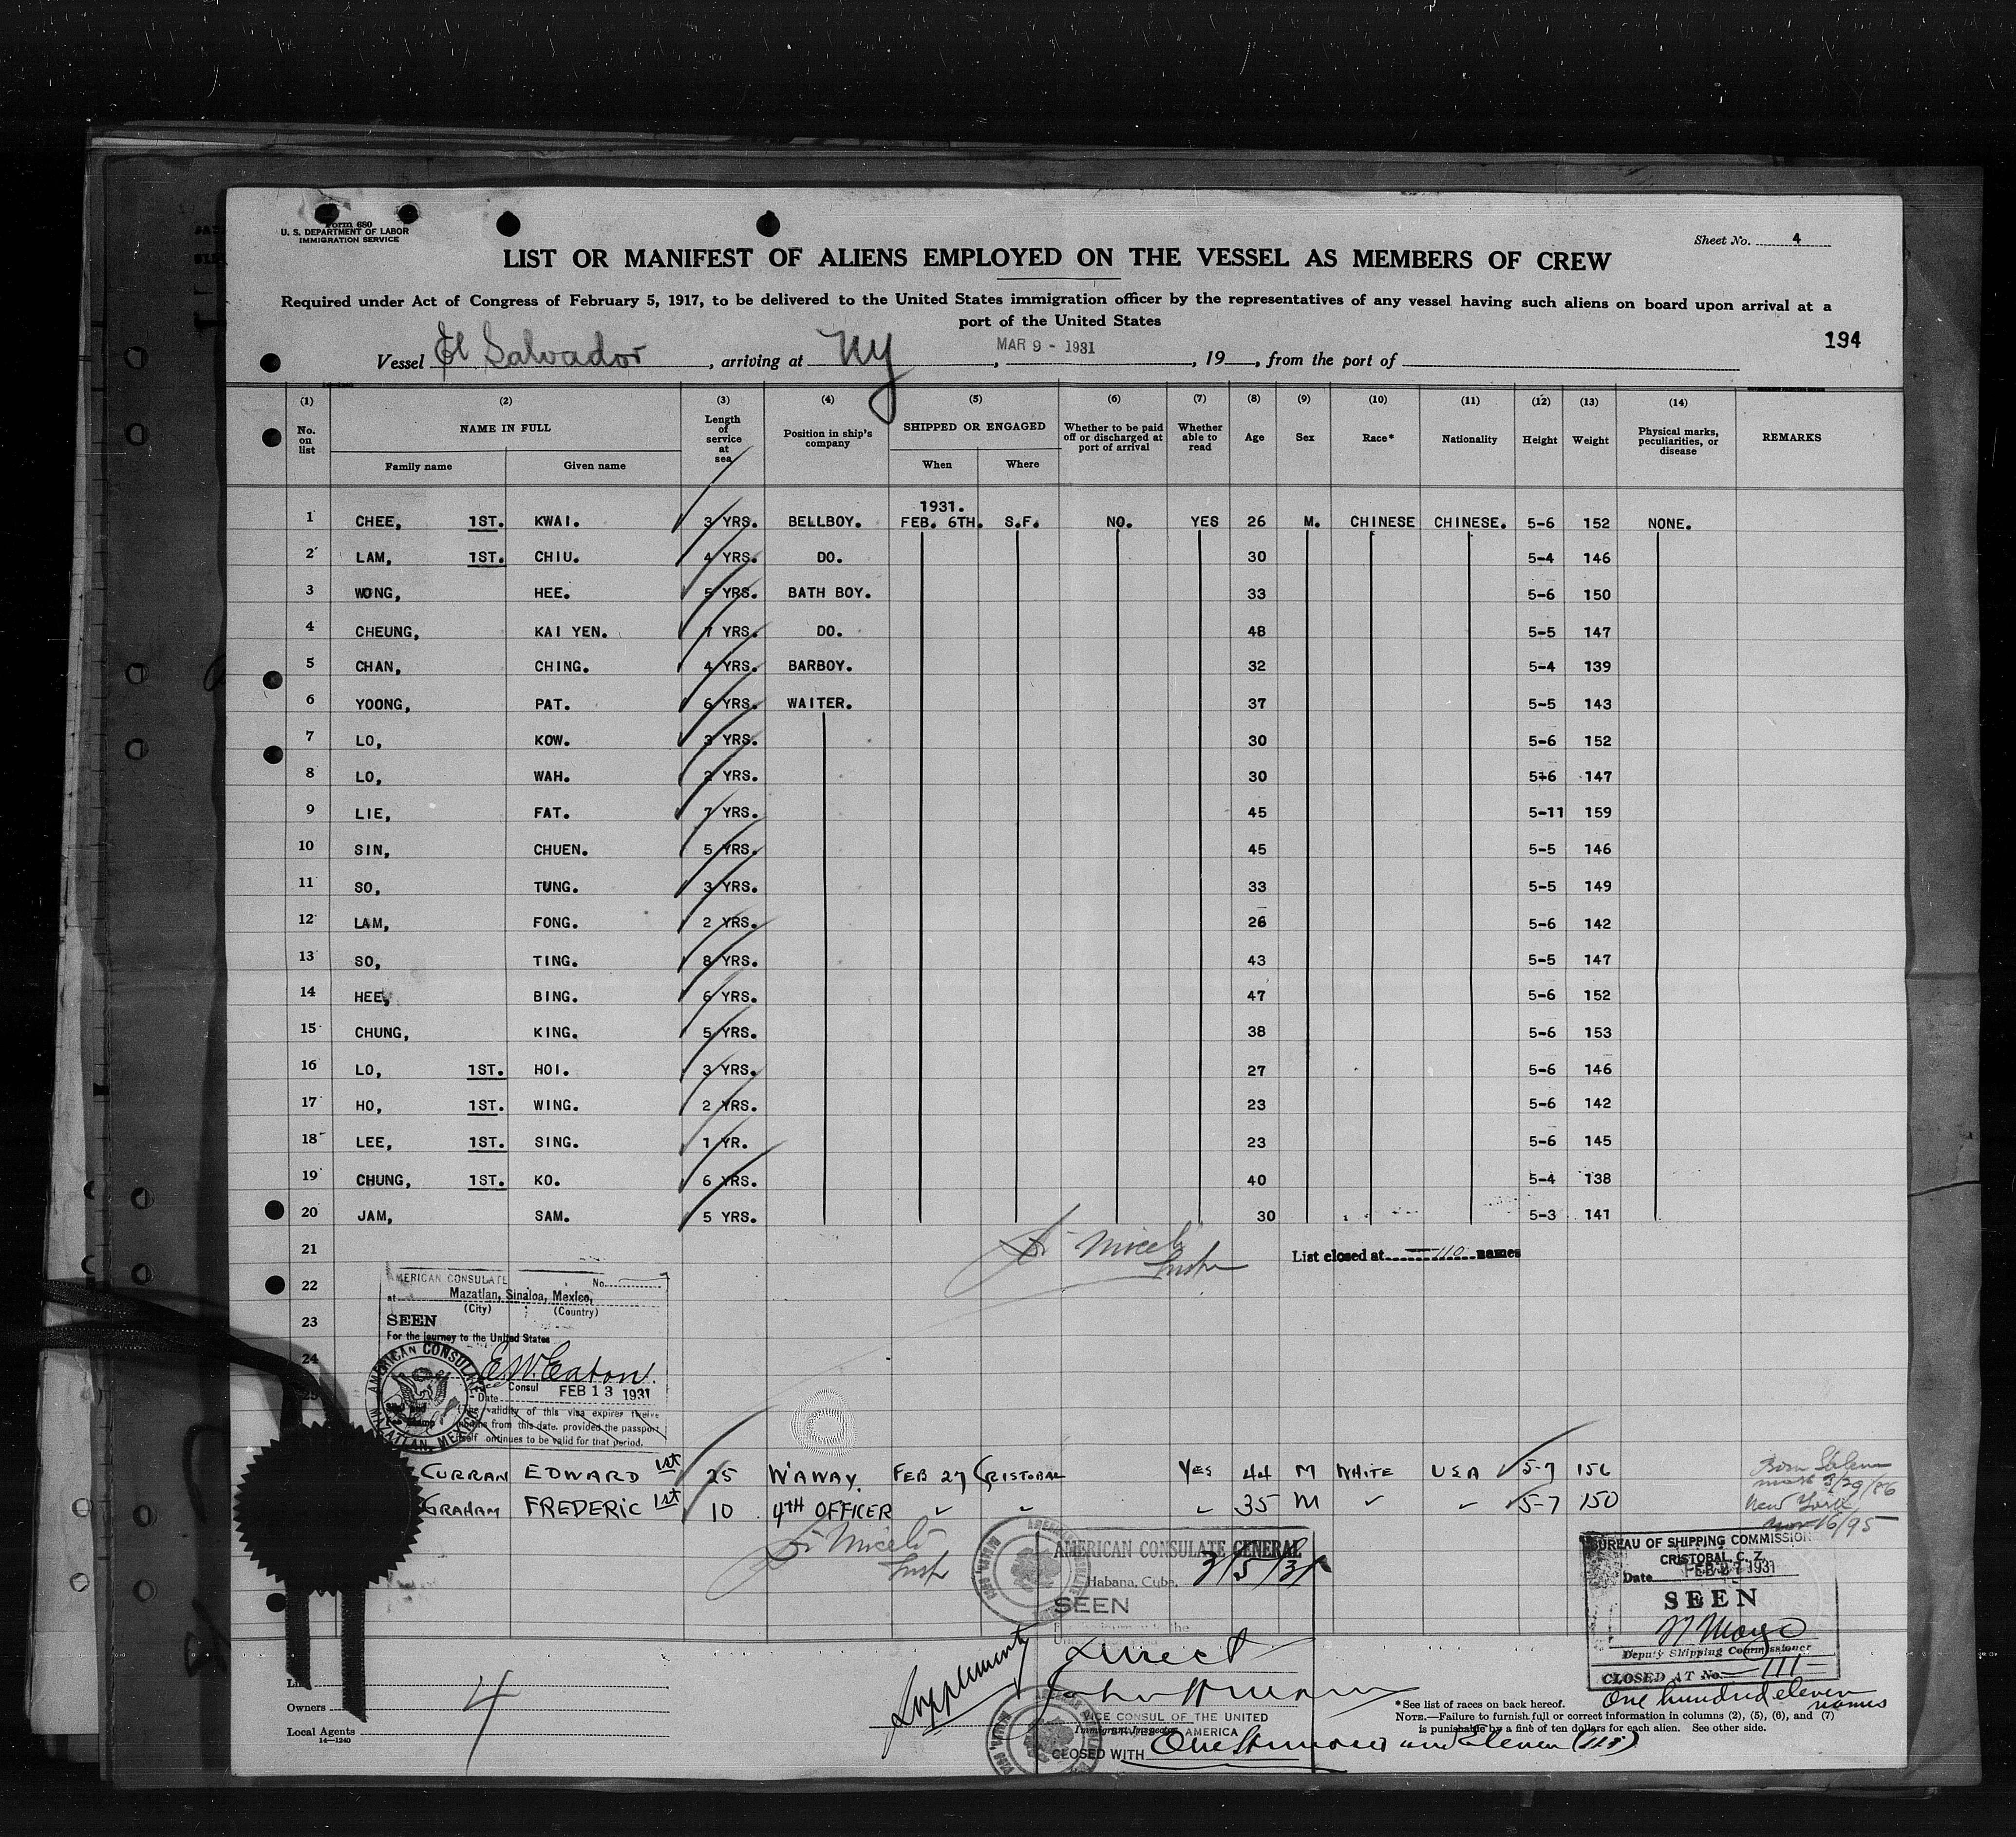 Form 680
U. S. DEPARTMENT OF LABOR
IMMIGRATION SERVICE
Sheet No. 4
LIST OR MANIFEST OF ALIENS EMPLOYED ON THE VESSEL AS MEMBERS OF CREW
Required under Act of Congress of February 5, 1917, to be delivered to the United States immigration officer by the representatives of any vessel having such aliens on board upon arrival at a
port of the United States
194
Vessel El Salvador, arriving at NY, MAR 9 - 1931, 19, from the port of
(1) (2) (3) (4) (5) (6) (7) (8) (9) (10) (11) (12) (13) (14)
No. on list NAME IN FULL Length of service at sea Position in ship's company SHIPPED OR ENGAGED Whether to be paid off or discharged at port of arrival Whether able to read Age Sex Race* Nationality Height Weight Physical marks, peculiarities, or disease REMARKS
Family name Given name When Where
1931.
1 CHEE, 1ST. KWAI. 3 YRS. BELLBOY. FEB. 6TH. S.F. NO. YES 26 M. CHINESE CHINESE. 5-6 152 NONE.
2 LAM, 1ST. CHIU. 4 YRS. DO. 30 5-4 146
3 WONG, HEE. 5 YRS. BATH BOY. 33 5-6 150
4 CHEUNG, KAI YEN. 7 YRS. DO. 48 5-5 147
5 CHAN, CHING. 4 YRS. BARBOY. 32 5-4 139
6 YOONG, PAT. 6 YRS. WAITER. 37 5-5 143
7 LO, KOW. 3 YRS. 30 5-6 152
8 LO, WAH. 2 YRS. 30 5-6 147
9 LIE, FAT. 7 YRS. 45 5-11 159
10 SIN, CHUEN. 5 YRS. 45 5-5 146
11 SO, TUNG. 3 YRS. 33 5-5 149
12 LAM, FONG. 2 YRS. 26 5-6 142
13 SO, TING. 8 YRS. 43 5-5 147
14 HEE, BING. 6 YRS. 47 5-6 152
15 CHUNG, KING. 5 YRS. 38 5-6 153
16 LO, 1ST. HOI. 3 YRS. 27 5-6 146
17 HO, 1ST. WING. 2 YRS. 23 5-6 142
18 LEE, 1ST. SING. 1 YR. 23 5-6 145
19 CHUNG, 1ST. KO. 6 YRS. 40 5-4 138
20 JAM, SAM. 5 YRS. 30 5-3 141
21
List closed at 110 names
22
23
24
25
AMERICAN CONSULATE No.
at Mazatlan, Sinaloa, Mexico,
(City) (Country)
SEEN
For the journey to the United States
E. W. Eaton.
Consul
Date FEB 13 1931
The validity of this visa expires twelve
months from this date, provided the passport
itself continues to be valid for that period.
AMERICAN CONSULATE MAZATLAN, MEXICO
CURRAN EDWARD 1st 25 W'AWAY. FEB 27 CRISTOBAL YES 44 M WHITE USA 5-7 156 Born Salem
mass 3/29/86
GRAHAM FREDERIC 1st 10 4TH OFFICER 35 M 5-7 150 New York
Nov 16/95
AMERICAN CONSULATE GENERAL
Habana, Cuba, 3/5/31
SEEN
BUREAU OF SHIPPING COMMISSION
CRISTOBAL, C. Z.
Date FEB 27 1931
SEEN
Deputy Shipping Commissioner
CLOSED AT No. 111
One hundred eleven
names
Supplementy
Direct
VICE CONSUL OF THE UNITED
STATES OF AMERICA
Immigrant Inspector.
CLOSED WITH One Hundred and Eleven (111)
Owners
Local Agents
14—1240
4
*See list of races on back hereof.
NOTE.—Failure to furnish full or correct information in columns (2), (5), (6), and (7)
is punishable by a fine of ten dollars for each alien. See other side.